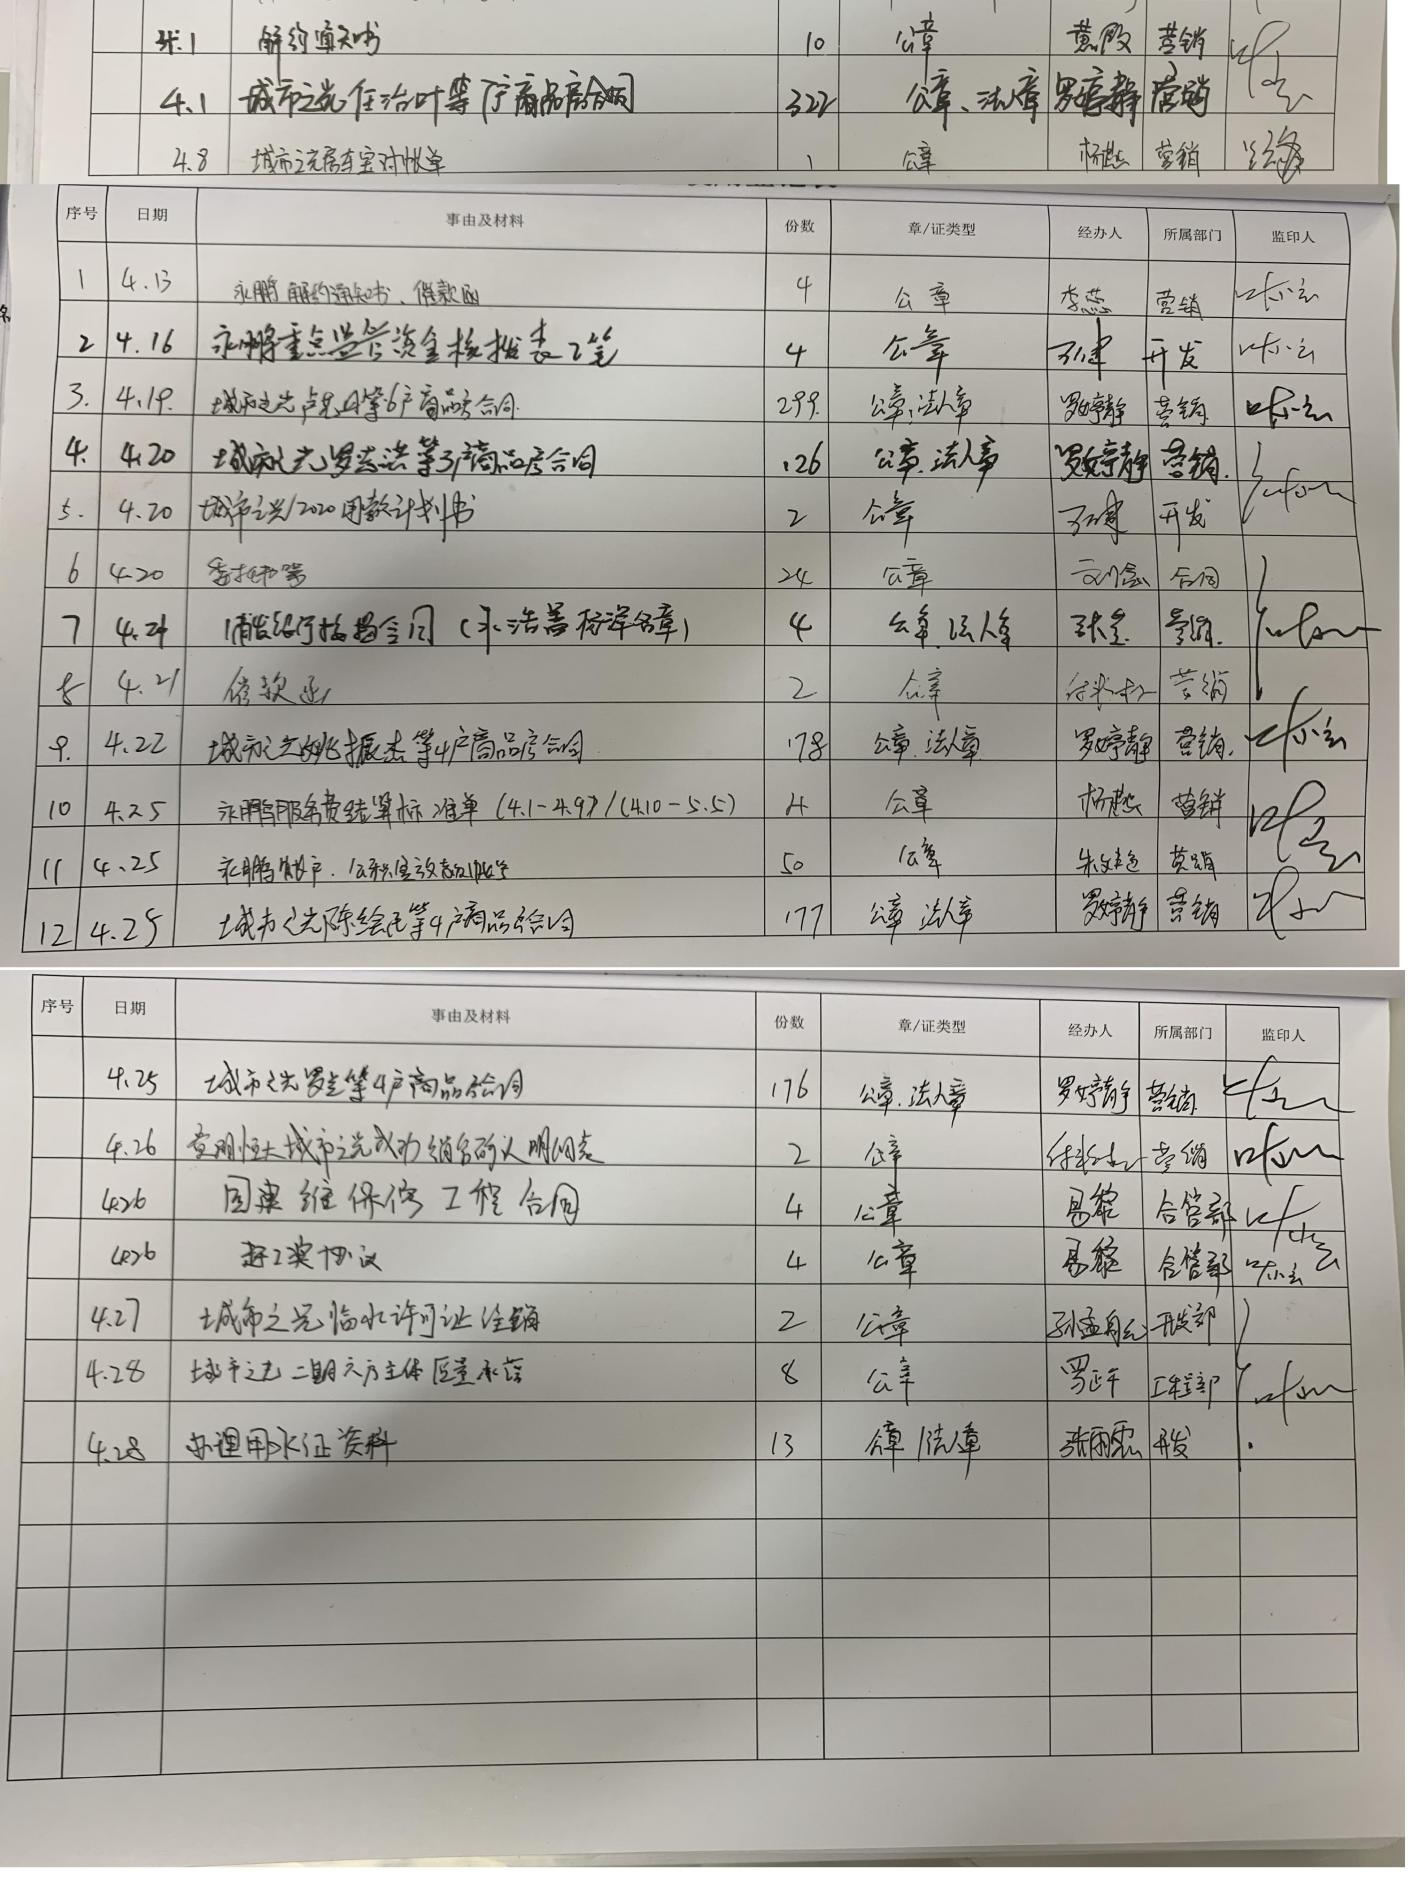 4.1 解约通知书 10 公章 营销
4.1 城市之光任治叶等7户商品房合同 322 公章、法章 罗婷静 营销
4.8 城市之光房车宝对帐单 1 公章 营销
序号 日期 事由及材料 份数 章/证类型 经办人 所属部门 监印人
1 4.13 永鹏解约通知书、催款函 4 公章 李蕊 营销 叶小云
2 4.16 永鹏重点监管资金核拨表2笔 4 公章 开发 叶小云
3. 4.19. 城市之光卢 等6户商品房合同. 299. 公章,法人章 罗婷静 营销. 叶小云
4. 4.20 城市之光罗 等3户商品房合同 126 公章.法人章 罗婷静 营销.
5. 4.20 城市之光2020用款计划书 2 公章 开发
6 4.20 24 公章 合同
7 4.21 浦发银行按揭合同 4 公章.法人章 营销.
8 4.21 催款函 2 公章 营销
9. 4.22 城市之光姚振杰等4户商品房合同 178 公章.法人章 罗婷静 营销. 叶小云
10 4.25 永鹏服务费结算标准单(4.1-4.9)/(4.10-5.5) 4 公章 营销
11 4.25 50 公章 营销
12 4.25 城市之光陈绘 等4户商品房合同 177 公章 法人章 罗婷静 营销
序号 日期 事由及材料 份数 章/证类型 经办人 所属部门 监印人
4.25 城市之光罗 等4户商品房合同 176 公章.法人章 罗婷静 营销
4.26 城市之光成功销名确认明细表 2 公章 营销
4.26 园建维保修工程合同 4 公章 易黎 合管部
4.26 赶工奖协议 4 公章 易黎 合管部 叶小云
4.27 城市之光临水许可证注销 2 公章 开发部
4.28 城市之光二期六方主体 承诺 8 公章 罗正午 工程部
4.28 办理用水证资料 13 公章/法人章 张雨霏 开发